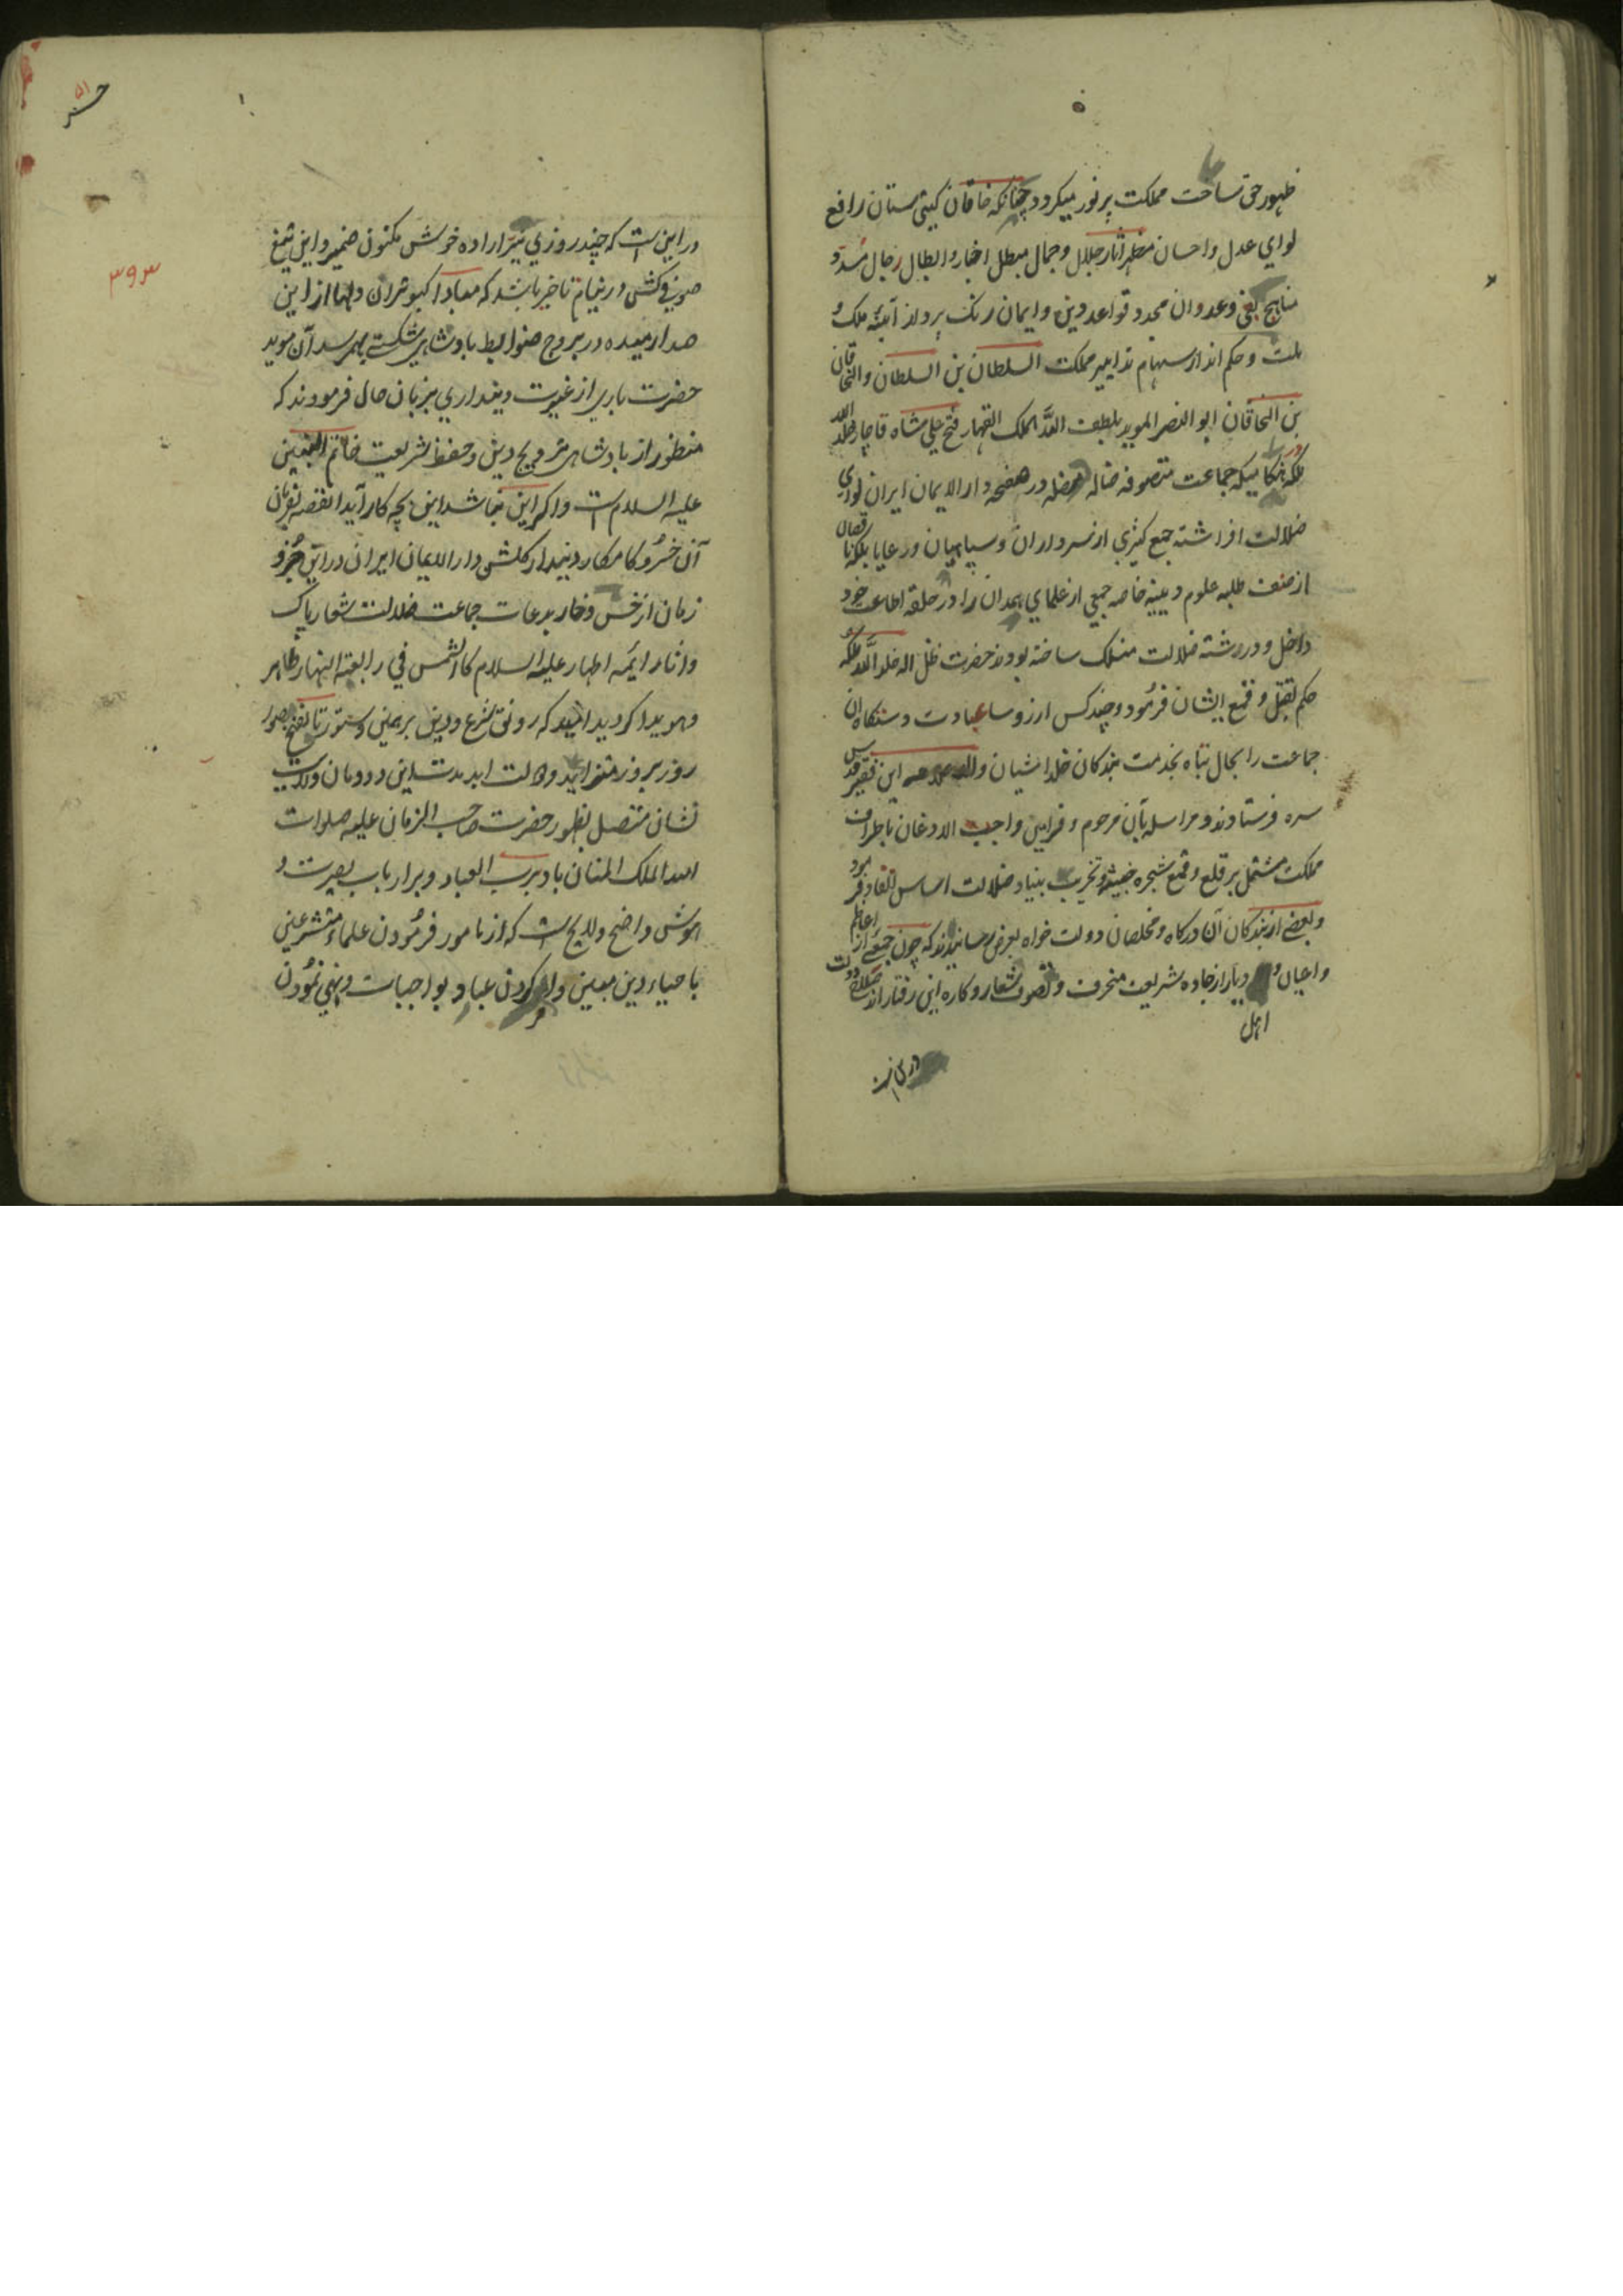 ظهور حق ساحت مملکت پر نور میکردد چنانکه خاقان کیتی ستان رافع
لوای عدل و احسان مظهر اثار جلال و جمال مبطل اخبار و ابطال رجال
مناهج بغی و عدوان مجدد قواعد دین و ایمان زنک برداز آیینه ملک و
ملت و حکم انداز سهام تدابیر مملکت السلطان بن السلطان والخاقان
بن الخاقان ابو النصر الموید بلطف الله الملک القهار فتح علی شاه قاجار خلد الله
ملکه جماعت متصوفه ضاله مضله در صفحه دار الایمان ایران لوای
ضلالت افراشته جمع کثیری از سرداران و سپاهیان و رعایا بلکه
از ضعف طلبه علوم دینیه خاصه جمعی از علمای همدان را در حلقه اطاعت خود
داخل و در رشته ضلالت منسلک ساخته بودند حضرت ظل اله خلد الله ملکه
حکم بقتل و قمع ایشان فرمود و چند کس از رؤسا عبادت دستکاه ان
جماعت را بحال تباه بخدمت بندکان خلد اشیان والد این فقیر قدس
سره فرستادند و مراسله بآن مرحوم و فرامین واجب الاذعان باطراف
مملکت مشتمل بر قلع و قمع شجره خبیثه و تخریب بنیاد ضلالت اساس
و بعضی از بندکان آن درکاه و مخلصان دولت خواه بعرض رسانیدند که چون جمعی از اعاظم
و اعیان و دیار از جاده شریعت منحرف و تصوف شعار و کاره این رفتار اند
اهل
۵۱
۳۹۳
در این است که چند روزی تیر اراده خوش مکنون ضمیر و این تیغ
صوفی کش در نیام تاخیر باشد که مبادا کبوتران دلها از این
صدا رمیده در بروج ضوابط بادشاهی شکستی بهمرسد آن موید
حضرت باری از غیرت دینداری بزبان حال فرمودند که
منظور از بادشاهی ترویج دین و حفظ شریعت خاتم النبیین
علیه السلام است و اکر این نباشد این بچه کار آید القصه بفرمان
آن خسرو کامکار دیندار کلشن دار الایمان ایران در این جزو
زمان از خس و خار بدعات جماعت ضلالت شعار پاک
و اثار ائمه اطهار علیه السلام کالشمس فی رابعة النهار ظاهر
و هویدا کردید امید که رونق شرع و دین بر همین دستور تا نفخ صور
روز بروز متزاید و دولت ابد مدت این دودمان ولایت
نشان متصل بظهور حضرت صاحب الزمان علیه صلوات
الله الملک المنان باد برب العباد و بر ارباب بصیرت و
هوش واضح و لایح است که از مامور فرمودن علماء متشرعین
باحیاء دین مبین و امر کردن عباد بواجبات و نهی نمودن